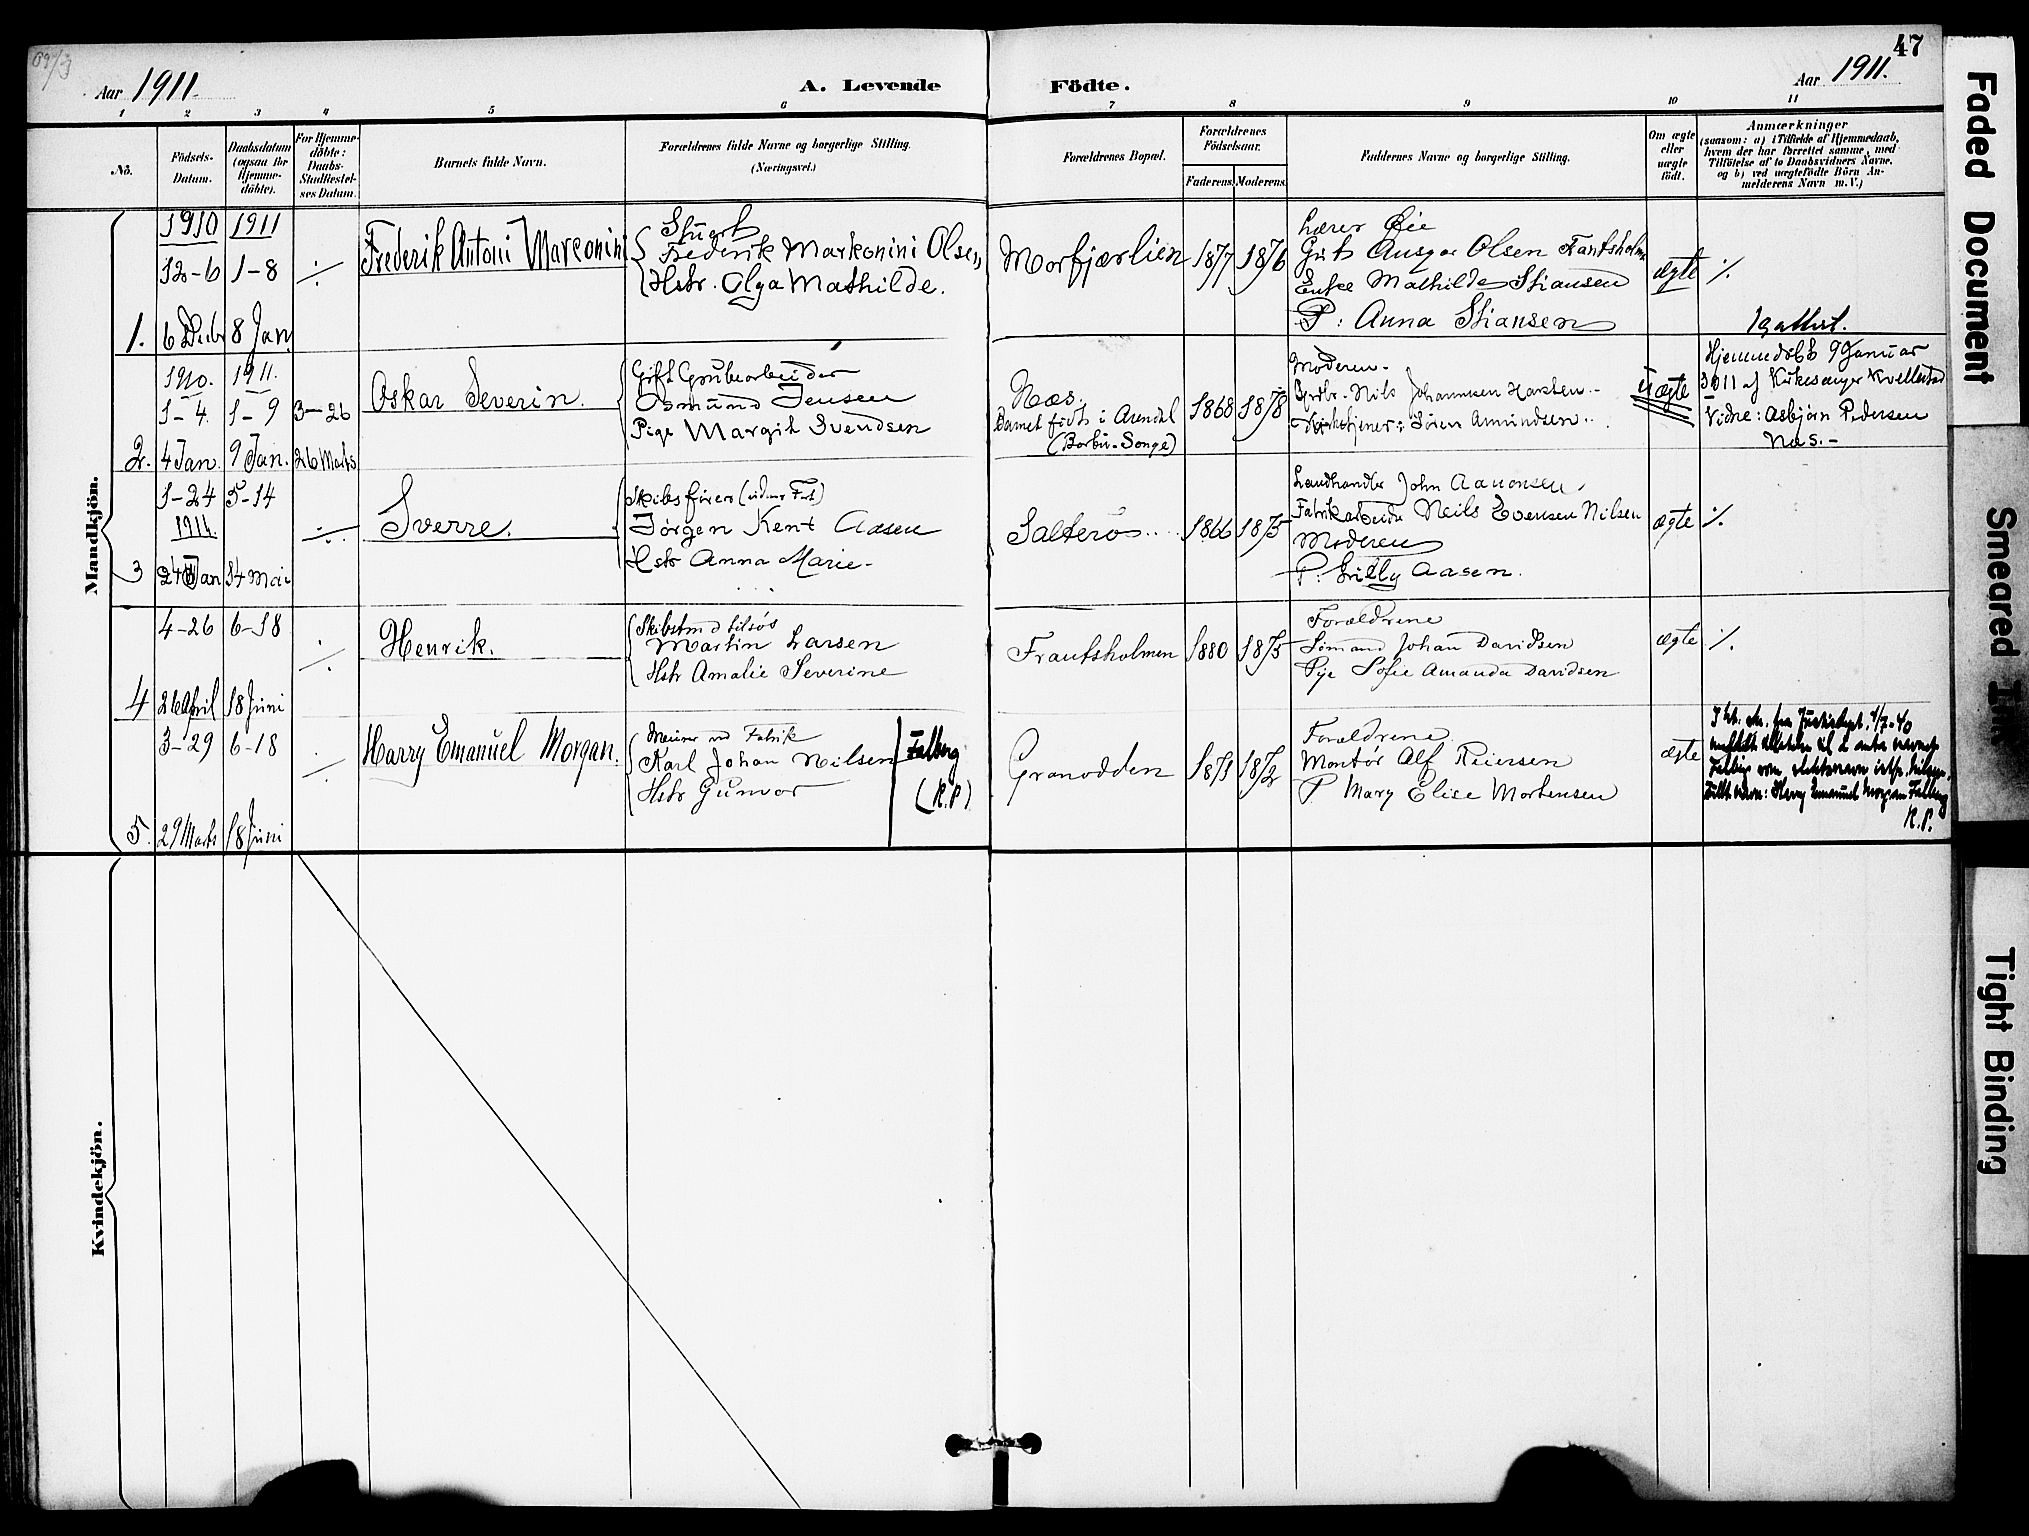 47
Aar 1911.
A. Levende Födte.
Aar 1911.
1 2 3 4 5 6 7 8 9 10 11
No.
Födsels-Datum.
Daabsdatum (ogsaa for Hjemmedöbte).
For Hjemmedöbte: Daabs-Stadfæstelses Datum.
Barnets fulde Navn.
Forældrenes fulde Navne og borgerlige Stilling.
(Næringsvei.)
Forældrenes Bopæl.
Forældrenes Födselsaar.
Faderens. Moderens.
Faddernes Navne og borgerlige Stilling.
Om ægte eller uægte födt.
Anmærkninger
(saasom: a) i Tilfælde af Hjemmedaab, hvem der har forrettet samme, med Tilföielse af to Daabsvidners Navne, og b) ved uægtefödte Börn Anmelderens Navn m. V.)
Mandkjön.
1910 1911
12-6 1-8
1. 8 Jan.
Frederik Antoni Marconini
Frederik Markonini Olsen
Hstr. Olga Mathilde.
Morfjærlien 1877 1876
Lærer Øie
Ansgar Olsen
Enke Mathilde Stiansen
P: Anna Stiansen
ægte
1910. 1911.
1-4. 1-9 3-26
2. 4 Jan. 9 Jan. 26 Marts
Oskar Severin.
Gift Grubearbeider
Osmund Jensen
Pige Margit Svendsen
Næs.
Barnet födt i Arendal
(Barbu-Songe)
1868 1878
Moderen.
Nils Johannesen
Sören Amundsen
Uægte
Hjemmedöbt 9 Januar
1911 af Kirkesanger Kvellestad
Vidne: Asbjörn Pedersen
Næs.-
1-24 5-14
1911.
3 24 Jan 14 Mai
Sverre.
Skibsförer
Jörgen Kent Aasen
Hstr Anna Marie-
Salterö 1866 1875
Landhandler John Aanonsen
Fabrikarbeider Neils Evensen Nilsen
Moderen
Aasen.
ægte
4-26 6-18
4 26 April 18 Juni
Henrik.
Martin Larsen
Hstr Amalie Severine
Frantsholmen 1880 1875
Forældrene
Sömand Johan Davidsen
Pige Sofie Amanda Davidsen
ægte
3-29 6-18
5. 29 Marts 18 Juni
Harry Emanuel Morgan.
Fabrik
Karl Johan Nilsen
Hstr Gunvor
Falberg
(R.P)
Granodden 1871 1872
Forældrene
Montör Alf Reiersen
P Mary Elise Mortensen
ægte
Fullt navn: Harry Emanuel Morgan Falberg
R.P.
Kvindekjön.
Faded Document
Smeared Ink
Tight Binding